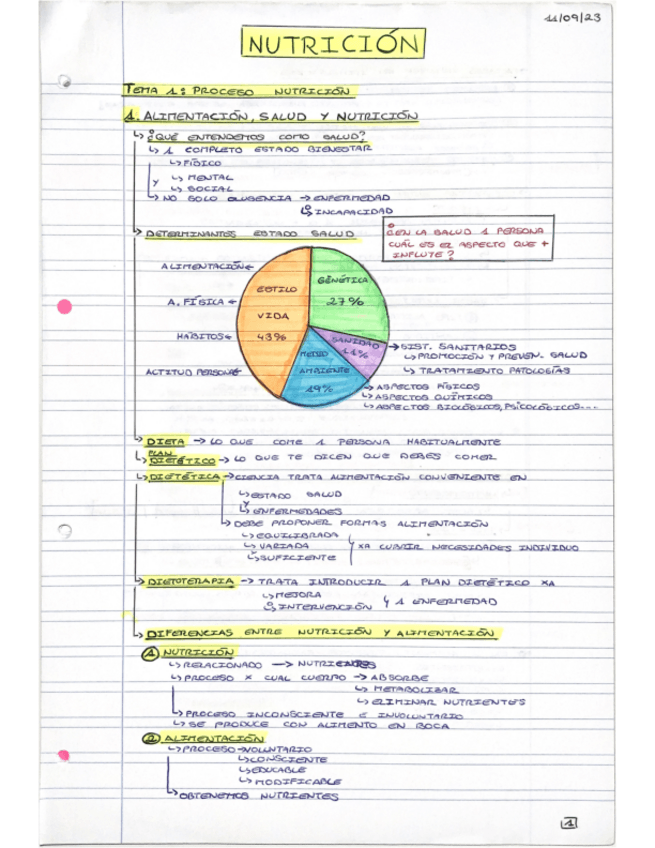 11/09/23
NUTRICIÓN
TEMA 1: PROCESO NUTRICIÓN
1. ALIMENTACIÓN, SALUD Y NUTRICIÓN
↳ ¿QUÉ ENTENDEMOS COMO SALUD?
↳ 1 COMPLETO ESTADO BIENESTAR
↳ FÍSICO
Y ↳ MENTAL
↳ SOCIAL
↳ NO SOLO AUSENCIA → ENFERMEDAD
↳ INCAPACIDAD
↳ DETERMINANTES ESTADO SALUD
¿EN LA SALUD 1 PERSONA
CUÁL ES EL ASPECTO QUE +
INFLUYE?
ALIMENTACIÓN ←
A. FÍSICA ←
HÁBITOS ←
ACTITUD PERSONA ←
ESTILO
VIDA
43%
GENÉTICA
27%
SANIDAD
11%
MEDIO
AMBIENTE
19%
→ SIST. SANITARIOS
↳ PROMOCIÓN Y PREVEN. SALUD
↳ TRATAMIENTO PATOLOGÍAS
→ ASPECTOS FÍSICOS
↳ ASPECTOS QUÍMICOS
↳ ASPECTOS BIOLÓGICOS, PSICOLÓGICOS...
↳ DIETA → LO QUE COME 1 PERSONA HABITUALMENTE
↳ PLAN DIETÉTICO → LO QUE TE DICEN QUE DEBES COMER
↳ DIETÉTICA → CIENCIA TRATA ALIMENTACIÓN CONVENIENTE EN
↳ ESTADO SALUD
Y
↳ ENFERMEDADES
↳ DEBE PROPONER FORMAS ALIMENTACIÓN
↳ EQUILIBRADA
↳ VARIADA Y XA CUBRIR NECESIDADES INDIVIDUO
↳ SUFICIENTE
↳ DIETOTERAPIA → TRATA INTRODUCIR 1 PLAN DIETÉTICO XA
↳ MEJORA
↳ INTERVENCIÓN Y 1 ENFERMEDAD
↳ DIFERENCIAS ENTRE NUTRICIÓN Y ALIMENTACIÓN
1 NUTRICIÓN
↳ RELACIONADO → NUTRIENTES
↳ PROCESO X CUAL CUERPO → ABSORBE
↳ METABOLIZAR
↳ ELIMINAR NUTRIENTES
↳ PROCESO INCONSCIENTE E INVOLUNTARIO
↳ SE PRODUCE CON ALIMENTO EN BOCA
2 ALIMENTACIÓN
↳ PROCESO → VOLUNTARIO
↳ CONSCIENTE
↳ EDUCABLE
↳ MODIFICABLE
↳ OBTENEMOS NUTRIENTES
1